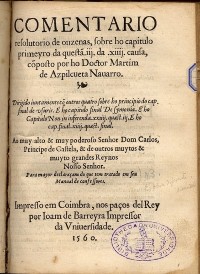 COMENTARIO
resolutorio de onzenas, sobre ho capitulo
primeyro da questã .iij. da .xiiij. causa,
cõposto por ho Doctor Martim
de Azpilcueta Nauarro.
Dirigido iuntamente cõ outros quatro sobre ho principio do cap.
final de vsuris. E ho capitulo final De symonia. E ho
Capitulo Non in inferenda .xxiij. quest. iij. E ho
cap. final .xiiij. quest. final.
Ao muy alto & muy poderoso Senhor Dom Carlos,
Principe de Castela, & de outros muytos &
muyto grandes Reynos
Nosso Senhor.
Para mayor declaraçam do que tem tratado em seu
Manual de confessores.
Impresso em Coimbra, nos paços del Rey
por Ioam de Barreyra Impressor
da Vniuersidade.
1560.